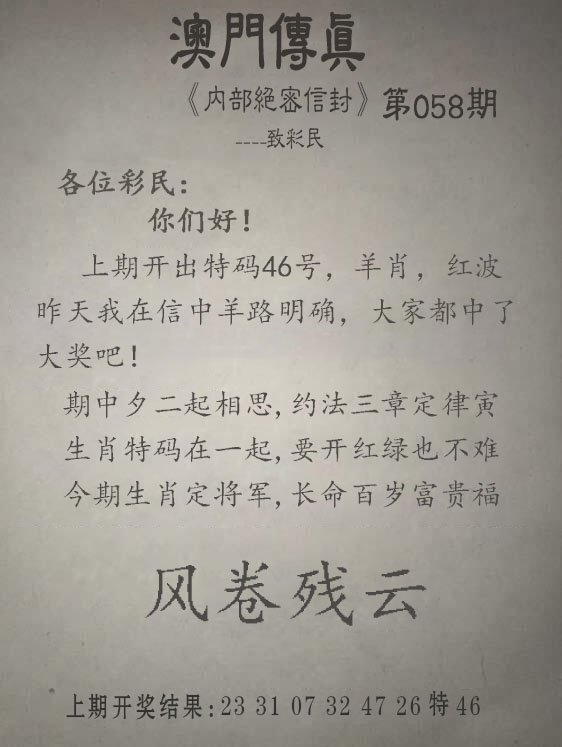 澳門傳真
《内部絕密信封》第058期
----致彩民
各位彩民：
你们好！
上期开出特码46号，羊肖，红波
昨天我在信中羊路明确，大家都中了
大奖吧！
期中夕二起相思,约法三章定律寅
生肖特码在一起,要开红绿也不难
今期生肖定将军,长命百岁富贵福
风卷残云
上期开奖结果:23 31 07 32 47 26特46